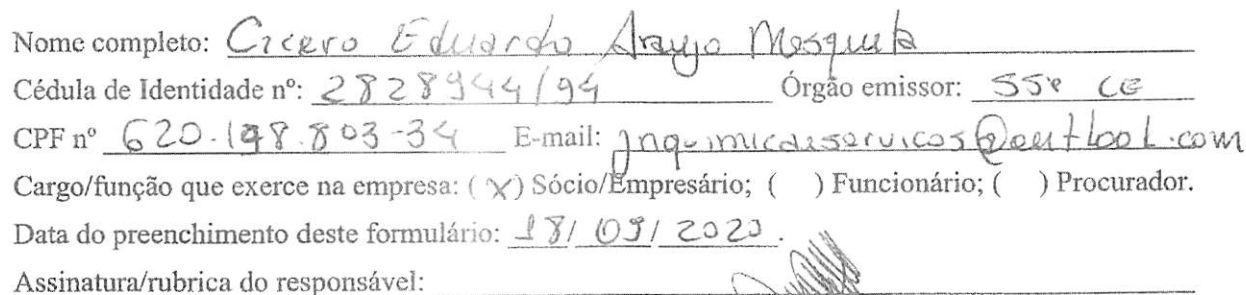 Nome completo: Cicero Eduardo Araujo Mesquita
Cédula de Identidade nº: 2828944/94 Órgão emissor: SSP CE
CPF nº 620.198.803-34 E-mail: jnquimicaeservicos@outlook.com
Cargo/função que exerce na empresa: (X) Sócio/Empresário; ( ) Funcionário; ( ) Procurador.
Data do preenchimento deste formulário: 18/09/2020.
Assinatura/rubrica do responsável: